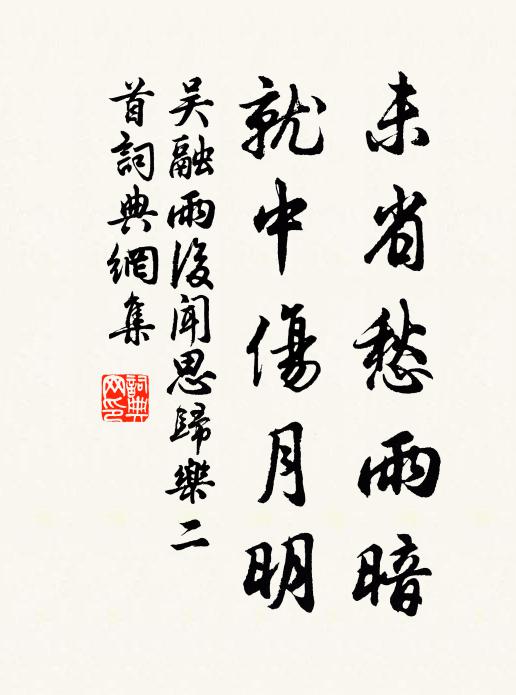 未省愁雨暗
就中傷月明
吳融雨後聞思歸樂二
首詞典網集
詞典
网印